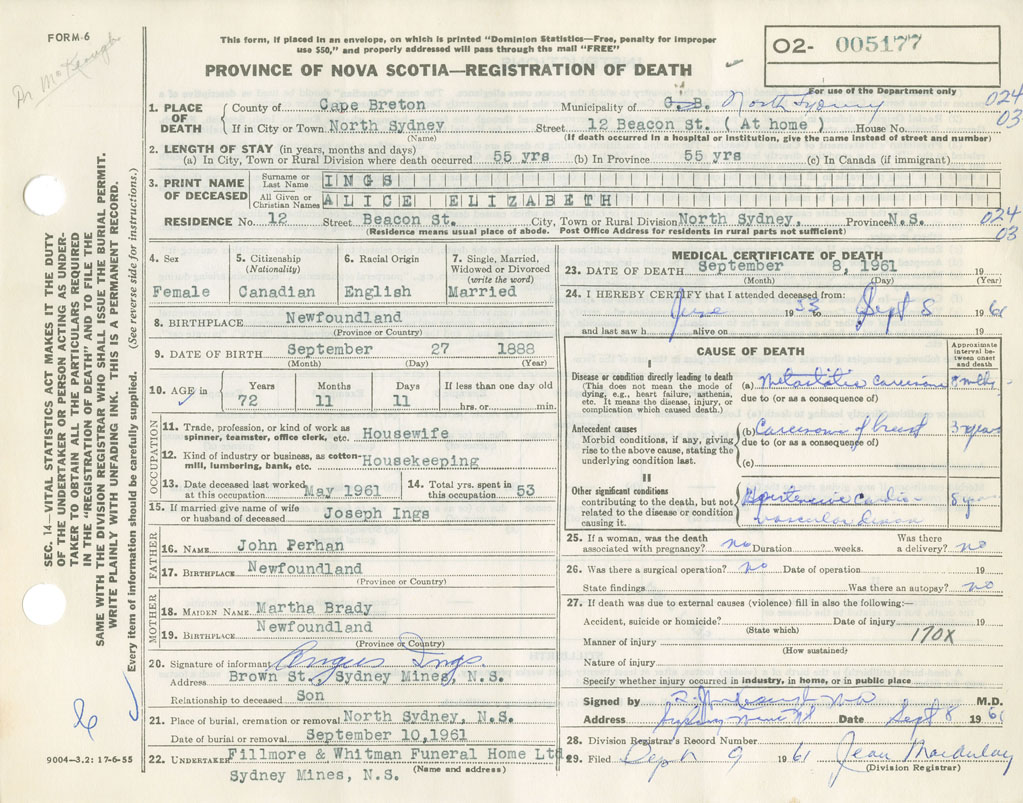 FORM 6
Dr. McKeough
This form, if placed in an envelope, on which is printed "Dominion Statistics—Free, penalty for improper
use $50," and properly addressed will pass through the mail "FREE"
PROVINCE OF NOVA SCOTIA—REGISTRATION OF DEATH
O2- 005177
For use of the Department only
1. PLACE OF DEATH
County of Cape Breton Municipality of C. B. North Sydney 024
If in City or Town North Sydney Street 12 Beacon St. ( At home ) House No. 03
(Name) (If death occurred in a hospital or institution, give the name instead of street and number)
2. LENGTH OF STAY (in years, months and days)
(a) In City, Town or Rural Division where death occurred 55 yrs (b) In Province 55 yrs (c) In Canada (if immigrant)
3. PRINT NAME OF DECEASED
Surname or Last Name INGS
All Given or Christian Names ALICE ELIZABETH
RESIDENCE No. 12 Street Beacon St. City, Town or Rural Division North Sydney, Province N.S. 024
(Residence means usual place of abode. Post Office Address for residents in rural parts not sufficient) 03
4. Sex
Female
5. Citizenship
(Nationality)
Canadian
6. Racial Origin
English
7. Single, Married,
Widowed or Divorced
(write the word)
Married
8. BIRTHPLACE Newfoundland
(Province or Country)
9. DATE OF BIRTH September 27 1888
(Month) (Day) (Year)
10. AGE in
Years Months Days If less than one day old
72 11 11 hrs. or min.
OCCUPATION
11. Trade, profession, or kind of work as
spinner, teamster, office clerk, etc. Housewife
12. Kind of industry or business, as cotton-
mill, lumbering, bank, etc. Housekeeping
13. Date deceased last worked
at this occupation May 1961
14. Total yrs. spent in
this occupation 53
15. If married give name of wife
or husband of deceased Joseph Ings
FATHER
16. NAME John Perhan
17. BIRTHPLACE Newfoundland
(Province or Country)
MOTHER
18. MAIDEN NAME Martha Brady
19. BIRTHPLACE Newfoundland
(Province or Country)
20. Signature of informant Angus Ings.
Address Brown St. Sydney Mines, N.S.
Relationship to deceased Son
21. Place of burial, cremation or removal North Sydney, N.S.
Date of burial or removal September 10,1961
22. UNDERTAKER Fillmore & Whitman Funeral Home Ltd
Sydney Mines, N.S. (Name and address)
MEDICAL CERTIFICATE OF DEATH
23. DATE OF DEATH September 8, 1961 19
(Month) (Day) (Year)
24. I HEREBY CERTIFY that I attended deceased from:
June 1953 to Sept 8 1961
and last saw h alive on 19
CAUSE OF DEATH
Approximate
interval be-
tween onset
and death
I
Disease or condition directly leading to death
(This does not mean the mode of
dying, e.g., heart failure, asthenia,
etc. It means the disease, injury, or
complication which caused death.)
(a) Metastatic carcinoma mths
due to (or as a consequence of)
Antecedent causes
Morbid conditions, if any, giving
rise to the above cause, stating the
underlying condition last.
(b) Carcinoma of breast 3 years
due to (or as a consequence of)
(c)
II
Other significant conditions
contributing to the death, but not
related to the disease or condition
causing it.
Hypertensive cardio- 8 yrs
vascular disease
25. If a woman, was the death
associated with pregnancy? no Duration weeks. Was there
a delivery? no
26. Was there a surgical operation? no Date of operation 19
State findings Was there an autopsy? no
27. If death was due to external causes (violence) fill in also the following:—
Accident, suicide or homicide? Date of injury 19
(State which)
Manner of injury 170X
(How sustained)
Nature of injury
Specify whether injury occurred in industry, in home, or in public place
Signed by M.D.
Address Sydney Mines NS Date Sept 8 1961
28. Division Registrar's Record Number
29. Filed Sept 9 1961 Jean
(Division Registrar)
SEC. 14—VITAL STATISTICS ACT MAKES IT THE DUTY
OF THE UNDERTAKER OR PERSON ACTING AS UNDER-
TAKER TO OBTAIN ALL THE PARTICULARS REQUIRED
IN THE "REGISTRATION OF DEATH" AND TO FILE THE
SAME WITH THE DIVISION REGISTRAR WHO SHALL ISSUE THE BURIAL PERMIT.
WRITE PLAINLY WITH UNFADING INK. THIS IS A PERMANENT RECORD.
Every item of information should be carefully supplied. (See reverse side for instructions.)
9004—3,2: 17-6-55